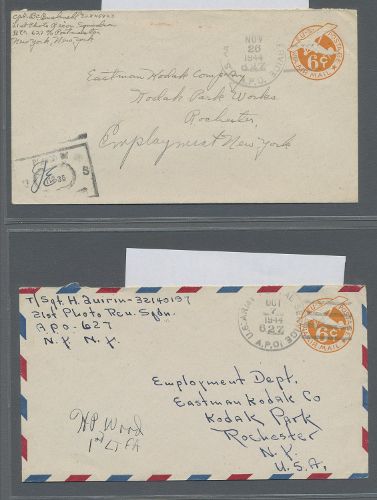 21st Photo Recon Squadron
New York, New York
NOV
26
1944
A.P.O.
627
U.S. POSTAGE
6¢
AIR MAIL
Eastman Kodak Company
Kodak Park Works
Rochester,
Employment New York
S
T/Sgt. H. Quirin-32140197
21st Photo Rcn. Sqdn.
A.P.O. 627
N.Y. N.Y.
U.S. ARMY POSTAL SERVICE
OCT
1944
627
A.P.O.
U.S. POSTAGE
6¢
AIR MAIL
Employment Dept.
Eastman Kodak Co
Kodak Park
Rochester
N.Y.
U.S.A.
HP Wood
1st Lt FA